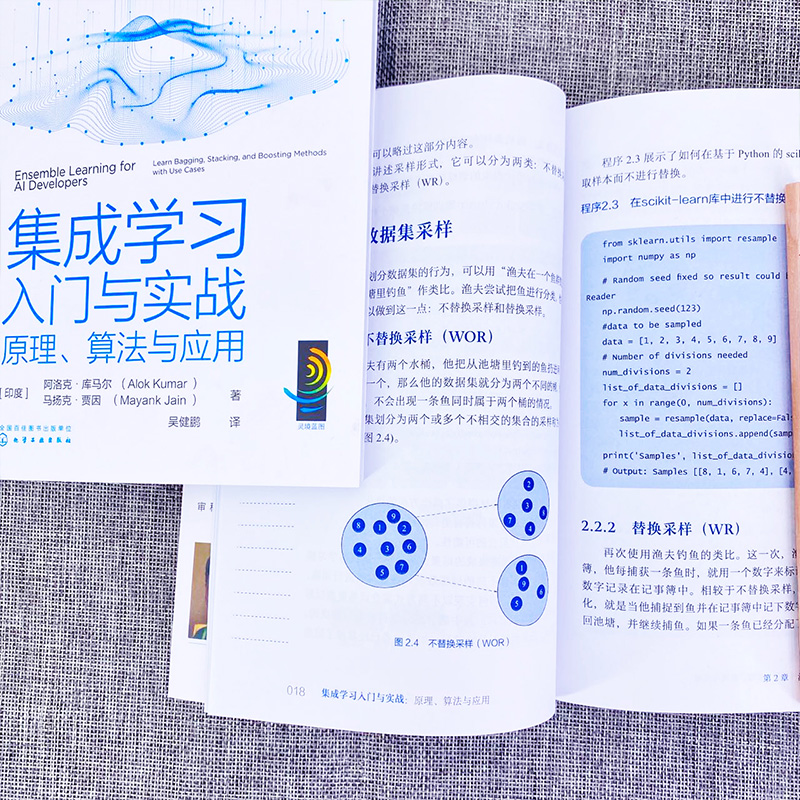 Ensemble Learning for
AI Developers
Learn Bagging, Stacking, and Boosting Methods
with Use Cases
集成学习
入门与实战
原理、算法与应用
[印度]
阿洛克·库马尔（Alok Kumar）
马扬克·贾因（Mayank Jain）
著
吴健鹏 译
灵境蓝图
全国百佳图书出版单位
化学工业出版社
可以略过这部分内容。
讲述采样形式，它可以分为两类：不替
替换采样（WR）。
数据集采样
划分数据集的行为，可以用“渔夫在一个鱼
塘里钓鱼”作类比。渔夫尝试把鱼进行分类，
以做到这一点：不替换采样和替换采样。
不替换采样（WOR）
夫有两个水桶，他把从池塘里钓到的鱼
一个，那么他的数据集就分为两个不同的
，不会出现一条鱼同时属于两个桶的情况。
集划分为两个或多个不相交的集合的采样
图 2.4）。
8 9 1 2 4 3 6 5 7
2 3 8 7 4
1 9 6 5
图 2.4 不替换采样（WOR）
018 集成学习入门与实战：原理、算法与应用
审
程序 2.3 展示了如何在基于 Python 的 sci
取样本而不进行替换。
程序2.3 在scikit-learn库中进行不替换
from sklearn.utils import resample
import numpy as np
# Random seed fixed so result could
Reader
np.random.seed(123)
#data to be sampled
data = [1, 2, 3, 4, 5, 6, 7, 8, 9]
# Number of divisions needed
num_divisions = 2
list_of_data_divisions = []
for x in range(0, num_divisions):
sample = resample(data, replace=Fal
list_of_data_divisions.append(samp
print('Samples', list_of_data_division
# Output: Samples [[8, 1, 6, 7, 4], [4,
2.2.2 替换采样（WR）
再次使用渔夫钓鱼的类比。这一次，
簿，他每捕获一条鱼时，就用一个数字来标
数字记录在记事簿中。相较于不替换采样，
化，就是当他捕捉到鱼并在记事簿中记下数
回池塘，并继续捕鱼。如果一条鱼已经分配
第 2 章